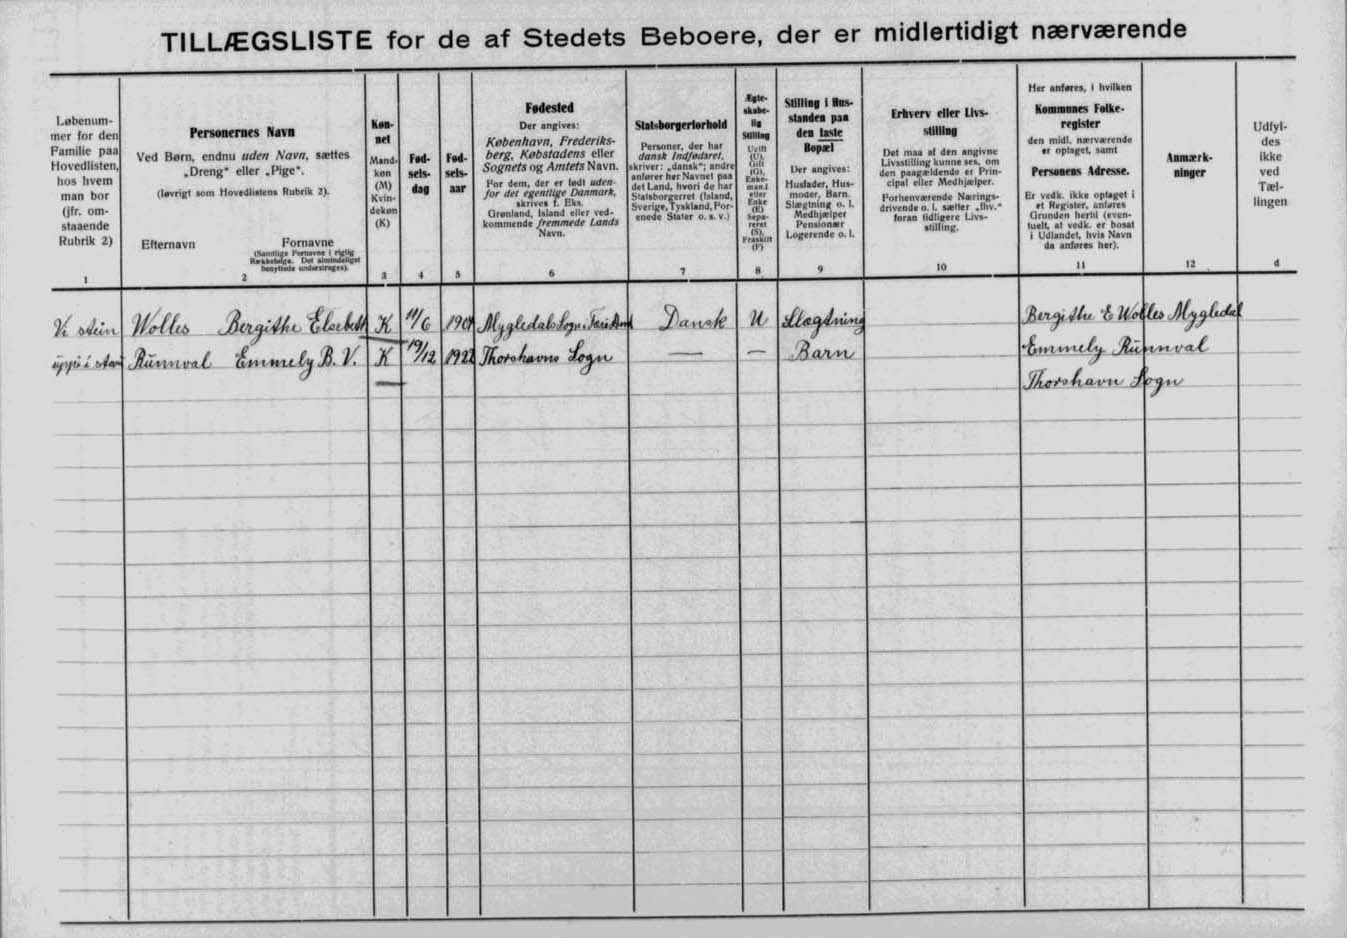 TILLÆGSLISTE for de af Stedets Beboere, der er midlertidigt nærværende
Løbenum-
mer for den
Familie paa
Hovedlisten,
hos hvem
man bor
(jfr. om-
staaende
Rubrik 2)
1
Personernes Navn
Ved Børn, endnu uden Navn, sættes
„Dreng“ eller „Pige“.
(Iøvrigt som Hovedlistens Rubrik 2).
Efternavn
Fornavne
(Samtlige Fornavne i rigtig
Rækkefølge. Det almindeligst
benyttede understreges).
2
Køn-
net
Mand-
køn
(M)
Kvin-
dekøn
(K)
3
Fød-
sels-
dag
4
Fød-
sels-
aar
5
Fødested
Der angives:
København, Frederiks-
berg, Købstadens eller
Sognets og Amtets Navn.
For dem, der er født uden-
for det egentlige Danmark,
skrives f. Eks.
Grønland, Island eller ved-
kommende fremmede Lands
Navn.
6
Statsborgerforhold
Personer, der har
dansk Indfødsret,
skriver: „dansk“; andre
anfører her Navnet paa
det Land, hvori de har
Statsborgerret (Island,
Sverige, Tyskland, For-
enede Stater o. s. v.)
7
Ægte-
skabe-
lig
Stilling
Ugift
(U),
Gift
(G),
Enke-
mand
eller
Enke
(E)
Sepa-
reret
(S),
Fraskilt
(F)
8
Stilling i Hus-
standen paa
den faste
Bopæl
Der angives:
Husfader, Hus-
moder, Barn.
Slægtning o. l.
Medhjælper
Pensionær
Logerende o. l.
9
Erhverv eller Livs-
stilling
Det maa af den angivne
Livsstilling kunne ses, om
den paagældende er Prin-
cipal eller Medhjælper.
Forhenværende Nærings-
drivende o. l. sætter „fhv.“
foran tidligere Livs-
stilling.
10
Her anføres, i hvilken
Kommunes Folke-
register
den midl. nærværende
er optaget, samt
Personens Adresse.
Er vedk. ikke optaget i
et Register, anføres
Grunden hertil (even-
tuelt, at vedk. er bosat
i Udlandet, hvis Navn
da anføres her).
11
Anmærk-
ninger
12
Udfyl-
des
ikke
ved
Tæl-
lingen
d
Vi stein Wolles Bergithe Elsebeth K /6 Mygledals Sogn Dansk U Slægtning Bergithe E Wolles Mygledal
uppi i Runnval Emmely B. V. K 19/12 Thorshavns Sogn — — Barn Emmely Runnval
Thorshavn Sogn